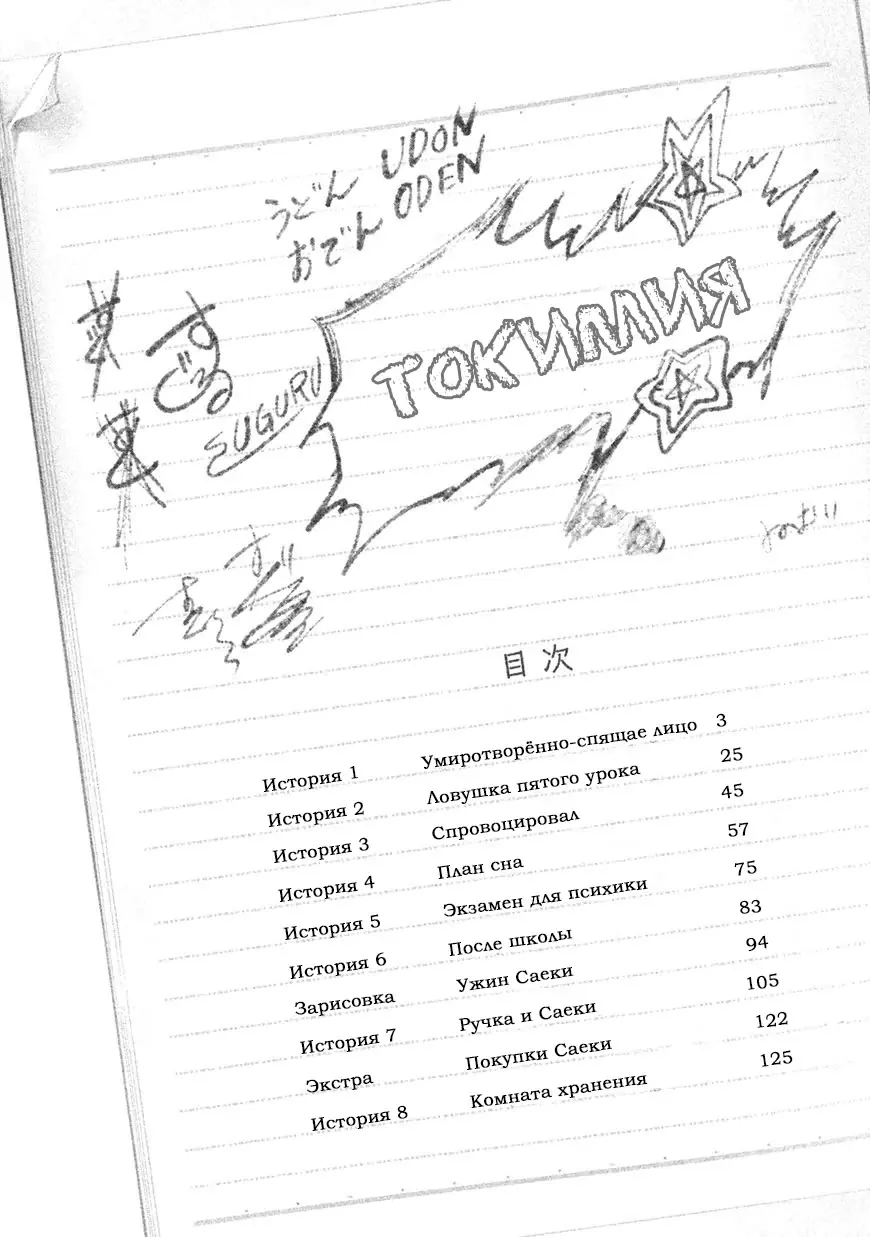 うどん UDON
おでん ODEN
すぐる
SUGURU
ТОКИМИЯ
目次
История 1 Умиротворённо-спящае лицо 3
История 2 Ловушка пятого урока 25
История 3 Спровоцировал 45
История 4 План сна 57
История 5 Экзамен для психики 75
История 6 После школы 83
Зарисовка Ужин Саеки 94
История 7 Ручка и Саеки 105
Экстра Покупки Саеки 122
История 8 Комната хранения 125